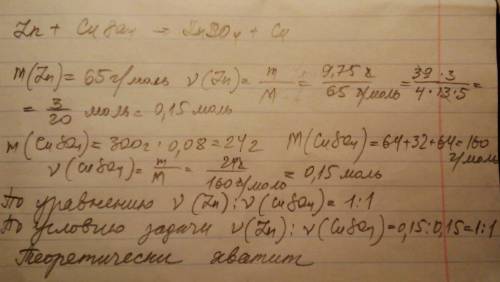 Zn + CuSO4 → ZnSO4 + Cu
m(Zn) = 65 г/моль ν(Zn) = m/M = 9,75 г / 65 г/моль = 39·3 / 4·13·5 =
= 3/20 моль = 0,15 моль
m(CuSO4) = 300г · 0,08 = 24г M(CuSO4) = 64+32+64 = 160 г/моль
ν(CuSO4) = m/M = 24г / 160 г/моль = 0,15 моль
По уравнению ν(Zn) : ν(CuSO4) = 1:1
По условию задачи ν(Zn) : ν(CuSO4) = 0,15 : 0,15 = 1:1
Теоретически хватит